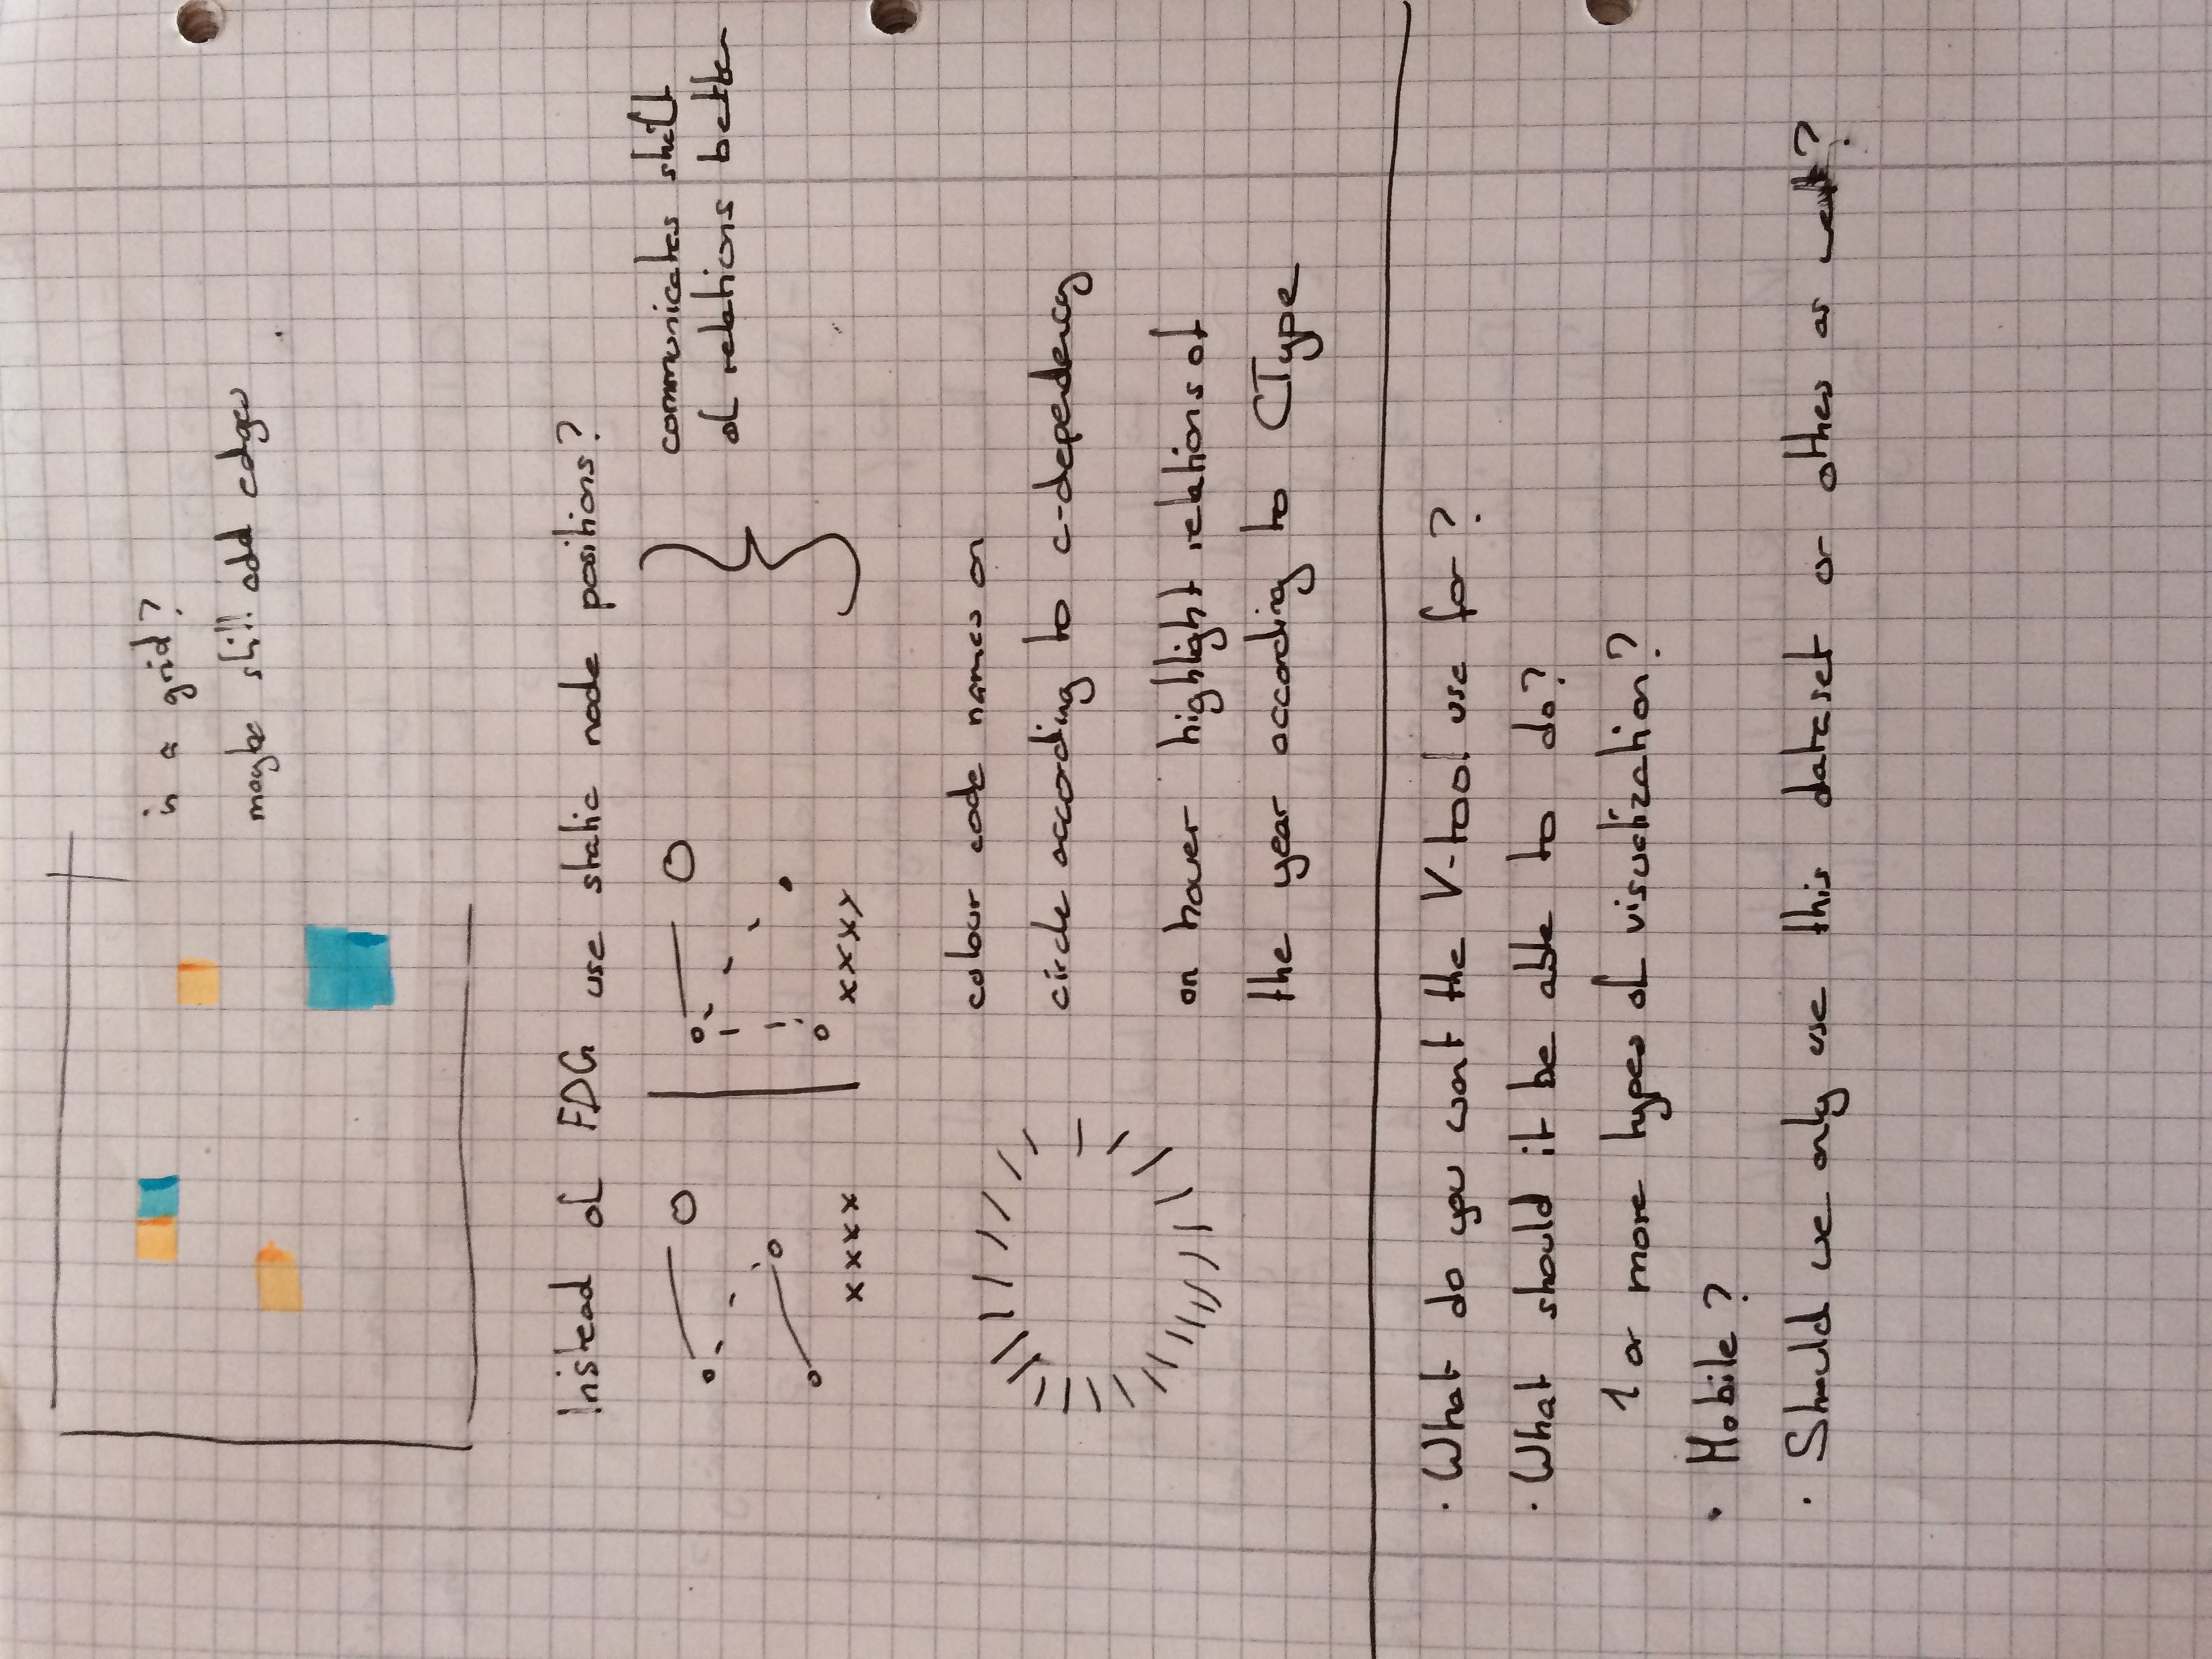 in a grid?
maybe still add edges
Instead of FDG use static node positions?
communicates shift
of relations better
xxxx
xxxx
colour code names on
circle according to c-dependency
on hover highlight relations of
the year according to CType
· What do you want the V-tool use for?
· What should it be able to do?
1 or more types of visualization?
· Mobile?
· Should we only use this dataset or others as well?